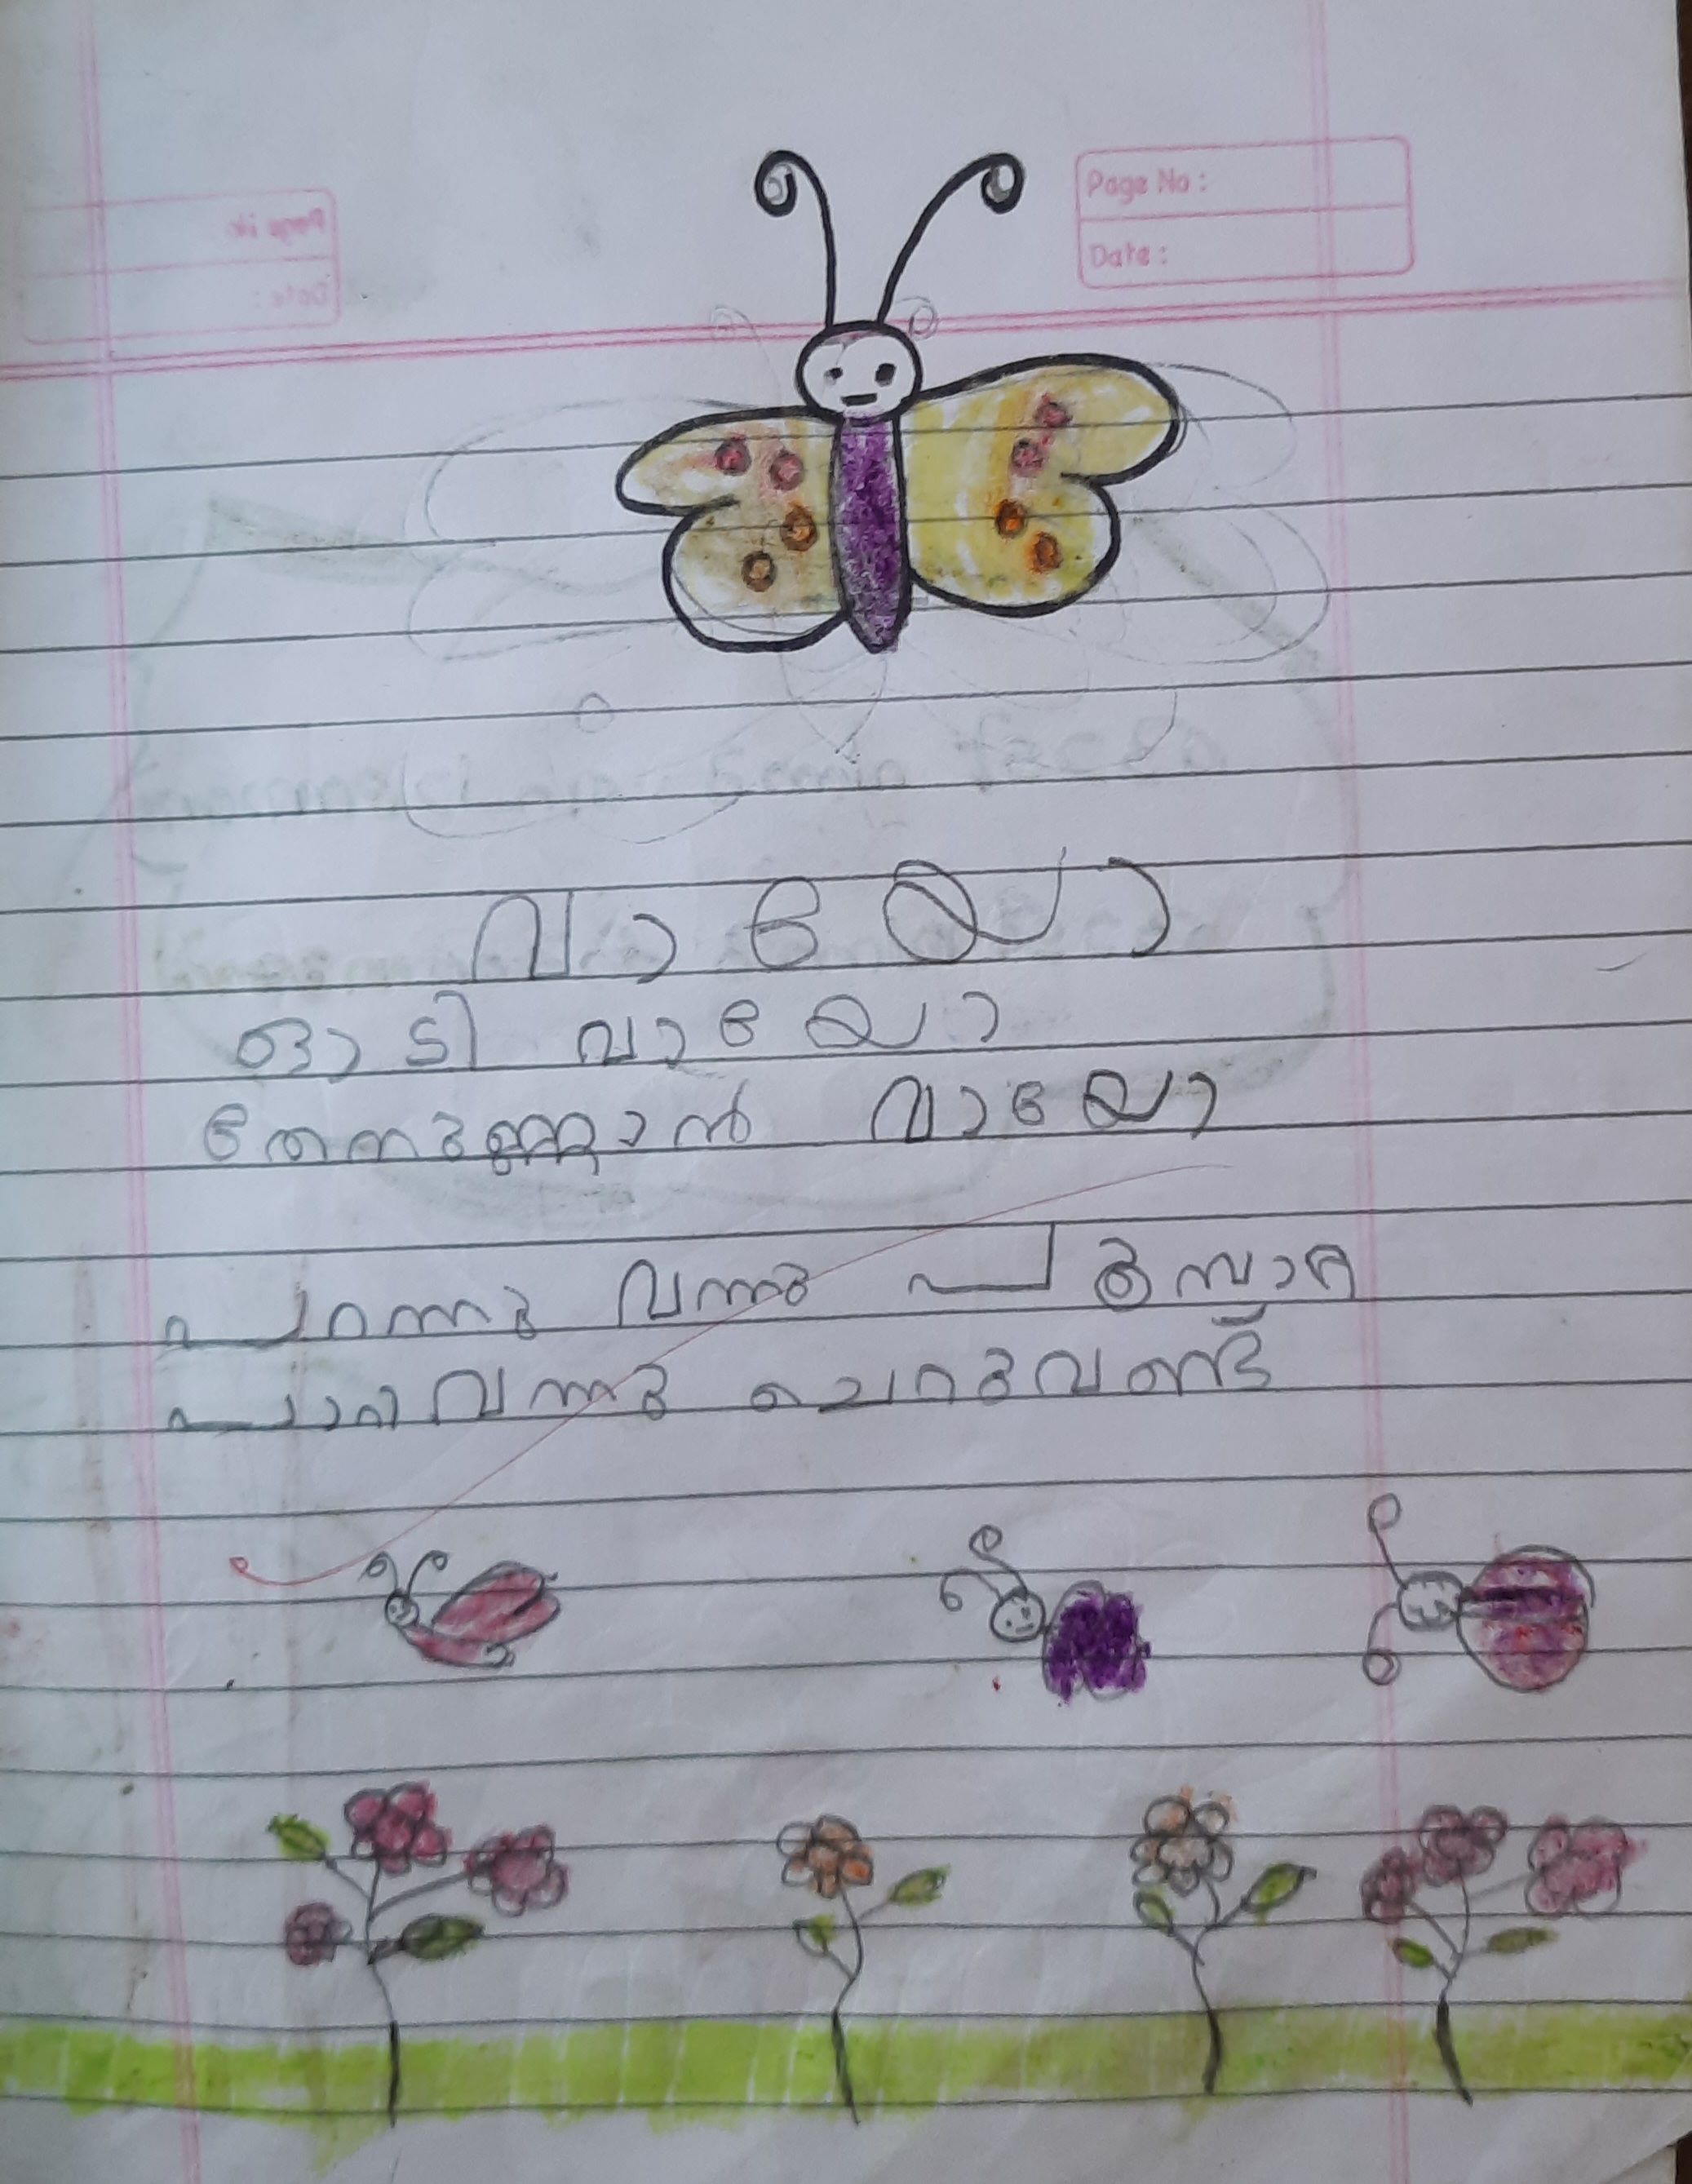 Page No :
Date :
വായോ
ഓടി വായോ
തേനുണ്ണാൻ വായോ
പറന്നു വന്നു പൂമ്പാറ്റ
പാറിവന്നു ചെറുവണ്ട്